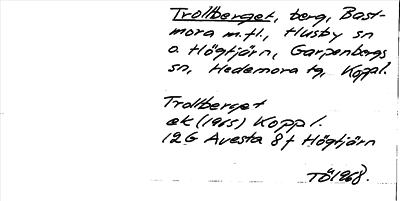 Trollberget, berg, Bast-
mora m.fl., Husby sn
o. Högtjärn, Garpenbergs
sn, Hedemora tg, Koppl.
Trollberget
ek (1965) Koppl.
12G Avesta 8f Högtjärn
TÖ 1968.